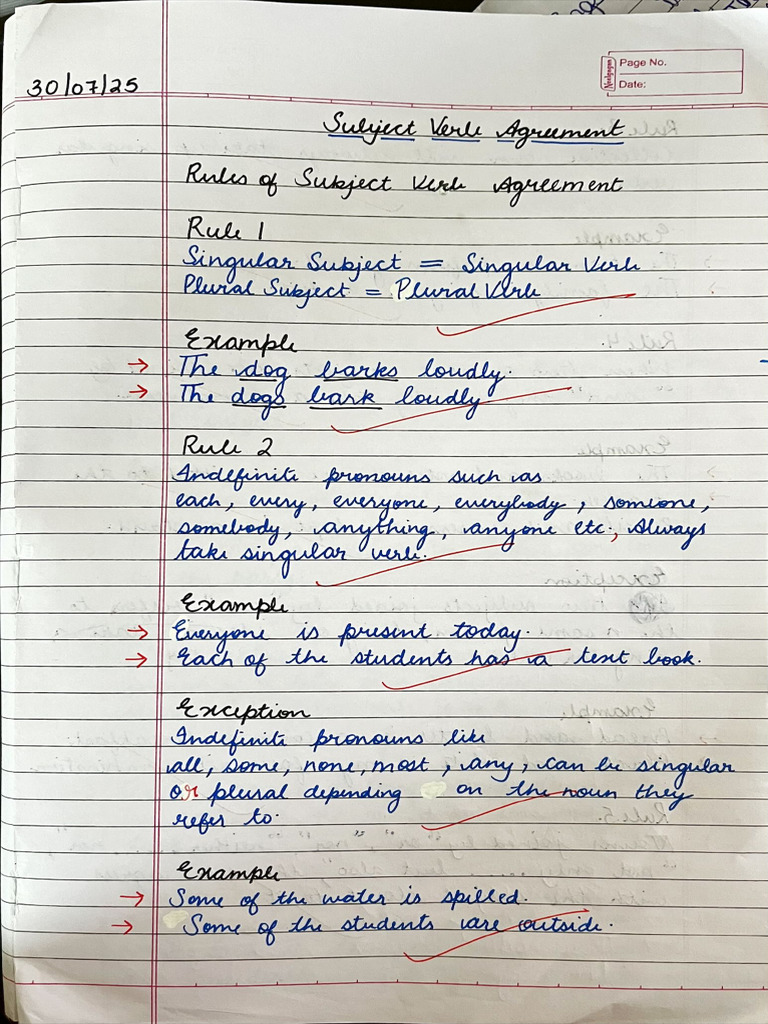 Page No.
Date:
Navlgagan
30/07/25
Subject Verb Agreement
Rules of Subject Verb Agreement
Rule 1
Singular Subject = Singular Verb
Plural Subject = Plural Verb
Example
→ The dog barks loudly.
→ The dogs bark loudly
Rule 2
Indefinite pronouns such as
each, every, everyone, everybody, someone,
somebody, anything, anyone etc., Always
take singular verb.
Example
→ Everyone is present today.
→ Each of the students has a text book.
Exception
Indefinite pronouns like
all, some, none, most, any, can be singular
or plural depending on the noun they
refer to.
Example
→ Some of the water is spilled.
→ Some of the students are outside.